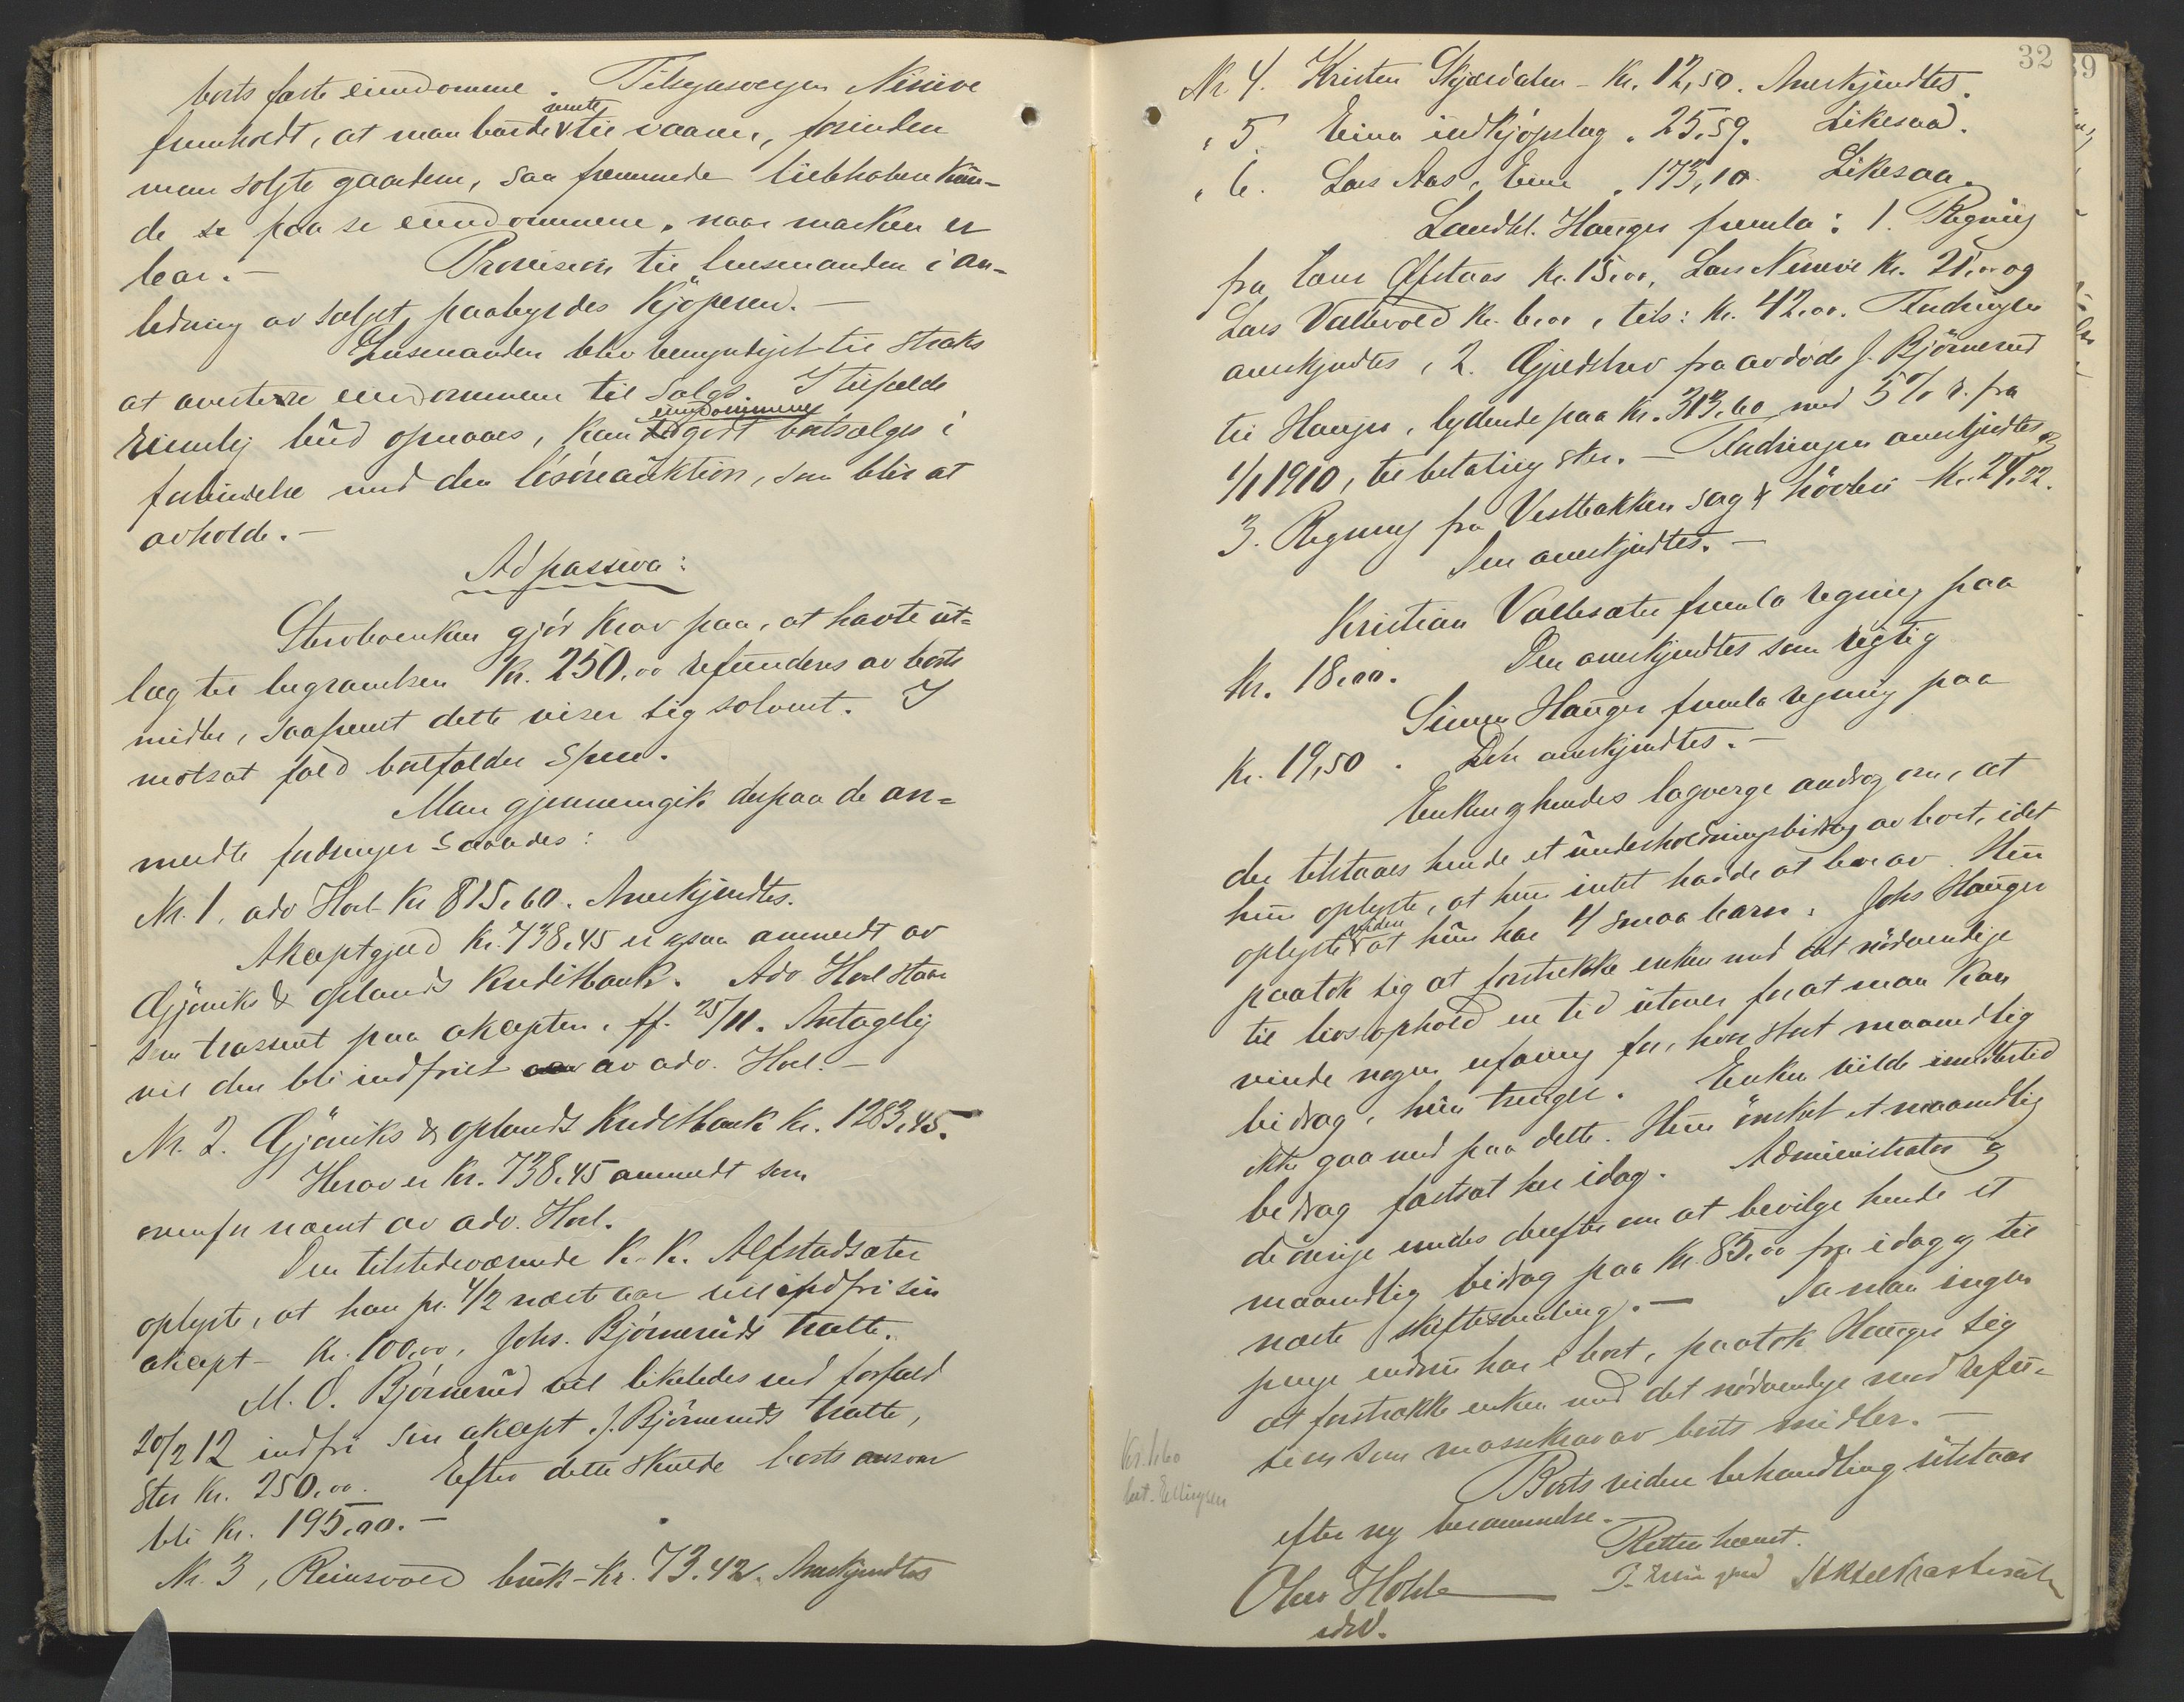 boets faste eiendomme. Tilsynsvergen Nineve
fremholdt, at man burde vente til vaaren, forinden
man solgte gaarden, saa fremmede liebhabere kun-
de se paa se eiendommene, naar marken er
bar.- Provision til lensmanden i an-
ledning av salget paabyrdes kjøperen.-
Lensmanden blev bemyndiget til straks
at avertere eiendommene til salgs. I tilfælde
rimelig bud opnaaes, kan eiendommene godt bortsælges i
forbindelse med den løsøreauktion, som blir at
avholde.-
Ad passiva:
Stervboenken gjør krav paa, at havte ut-
læg til begravelsen Kr. 250.00 refunderes av boets
midler, saafremt dette viser sig solvent. I
motsat fald bortfalder spm.
Man gjennemgik derpaa de an-
meldte fordringer saaledes:
Nr. 1. adv Hoel Kr 815.60. Anerkjendtes.
Akceptgjæld Kr. 738.45 er ogsaa anmeldt av
Gjøviks & oplands Kreditbank. Adv Hoel staar
som trassent paa akcepten, ff. 25/11. Antagelig
vil den bli indfriet av adv. Hoel.-
Nr. 2. Gjøviks & oplands Kreditbank Kr. 1283,45.
Herav er Kr. 738.45 anmeldt som
ovenfor nævnt av adv. Hoel.
Den tilstedeværende K. K. Alfstadsæter
oplyste, at han pr. 4/2 næste aar vil indfri sin
akcept - Kr. 100,00, Johs. Bjørneruds tratte.
M. O. Bjørnerud vil likeledes ved forfald
20/2 12 indfri sin akcept J. Bjørneruds tratte,
stor Kr. 250,00. Efter dette skulde boets ansvar
bli Kr. 195,00.-
Nr. 3, Reinsvold bruk - Kr. 73.42. Anerkjendtes
32
39
Nr. 4. Kristen Skjærdalen - Kr. 12,50. Anerkjendtes.
" 5 Eina indkjøpslag " 25.59. Likesaa.
" 6. Lars Aas, Eina " 173,10 Likesaa.
Landhl. Hauger fremla: 1. Regning
fra Kr. 15,00, Lars Nineve Kr. 21,00 og
Lars Valbvold Kr. 6,00, tils: Kr. 42,00. Fordringen
anerkjendtes, 2. Gjældsbrev fra avdøde J. Bjørnerud
til Hauger, lydende paa Kr. 313,60 med 5% r. fra
1/1 1910, til betaling sker. - Fordringen anerkjendtes og
3. Regning fra Vestbakken sag & høvleri Kr. 24,22.
Den anerkjendtes.-
Kristian Vallesæter fremla regning paa
Kr. 18,00. Den anerkjendtes som rigtig
Simen Hauger fremla regning paa
Kr. 19,50. Den anerkjendtes.-
Enken og hendes lagverge androg om, at
der tilstaaes hende et underholdningsbidrag av boet, idet
hun oplyste, at hun intet hadde at leve av. Hun
oplyste videre at hun har 4 smaa barn. Johs Hauger
paatok sig at forstrekke enken med det nødvendige
til livsophold en tid utover for at man kan
vinde nogen erfaring for, hvor stort maanedlig
bidrag, hun trenger. Enken vilde imidlertid
ikke gaa med paa dette. Hun ønsket et maanedlig
bidrag fastsat her idag. Administrator og
de øvrige enedes derefter om at bevilge hende et
maanedlig bidrag paa Kr. 85,00 fra idag og til
næste skiftesamling.- Da man ingen
penge endnu har i boet, paatok Hauger sig
at forstrække enken med det nødvendige med refu-
sion som massekrav av boets midler.-
Boets videre behandling utstaar
efter ny berammelse.
Retten hævet.
Kr. 1.60
bet. Ellingsen
Olav Hohle
sdv.